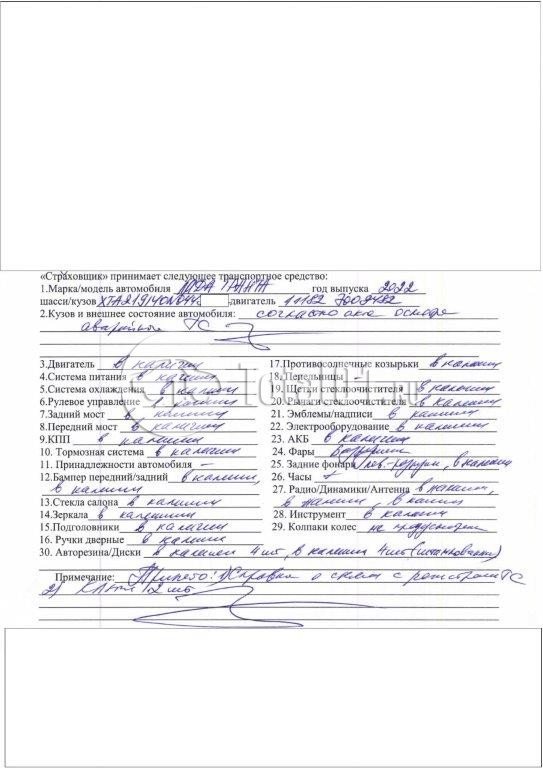 «Страховщик» принимает следующее транспортное средство:
1.Марка/модель автомобиля ЛАДА ГРАНТА год выпуска 2022
шасси/кузов XTA219140N844 двигатель 11182 7009482
2.Кузов и внешнее состояние автомобиля: согласно акта осмотра
аварийного ТС
3.Двигатель в наличии
4.Система питания в наличии
5.Система охлаждения в наличии
6.Рулевое управление в наличии
7.Задний мост в наличии
8.Передний мост в наличии
9.КПП в наличии
10. Тормозная система в наличии
11. Принадлежности автомобиля –
12.Бампер передний/задний в наличии,
в наличии
13.Стекла салона в наличии
14.Зеркала в наличии
15.Подголовники в наличии
16. Ручки дверные в наличии
17.Противосолнечные козырьки в наличии
18. Пепельницы –
19. Щетки стеклоочистителя в наличии
20. Рычаги стеклоочистителя в наличии
21. Эмблемы/надписи в наличии
22. Электрооборудование в наличии
23. АКБ в наличии
24. Фары
25. Задние фонари лев. - , в наличии
26. Часы –
27. Радио/Динамики/Антенна в наличии,
в наличии - в наличии
28. Инструмент в наличии
29. Колпаки колес не предусмотрены
30. Авторезина/Диски в наличии 4 шт, в наличии 4 шт (штамповани)
Примечание: Принято: 1) Справка о снят с регистрац ТС
2) Ключи 2 шт